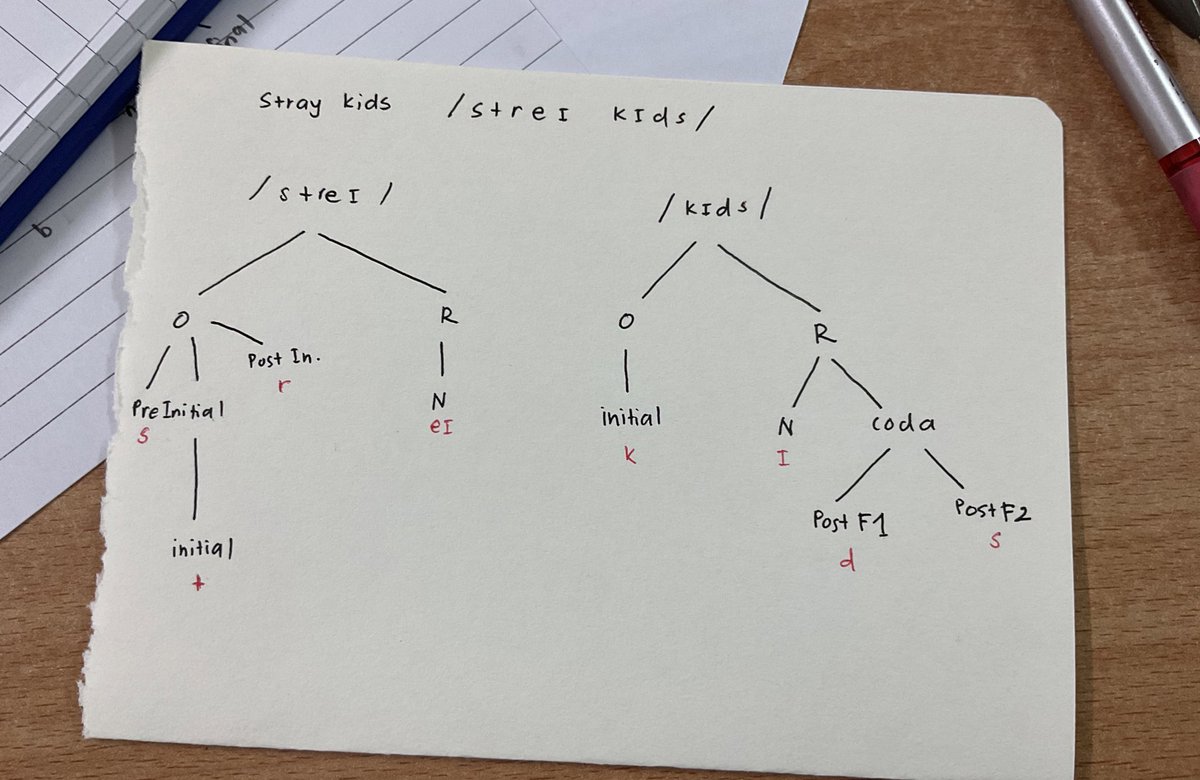 Stray kids /streɪ kɪds/
/streɪ/ /kɪds/
O R O R
Post In.
r
Pre Initial N initial N coda
s eɪ k ɪ
Post F1 Post F2
d s
initial
t
b